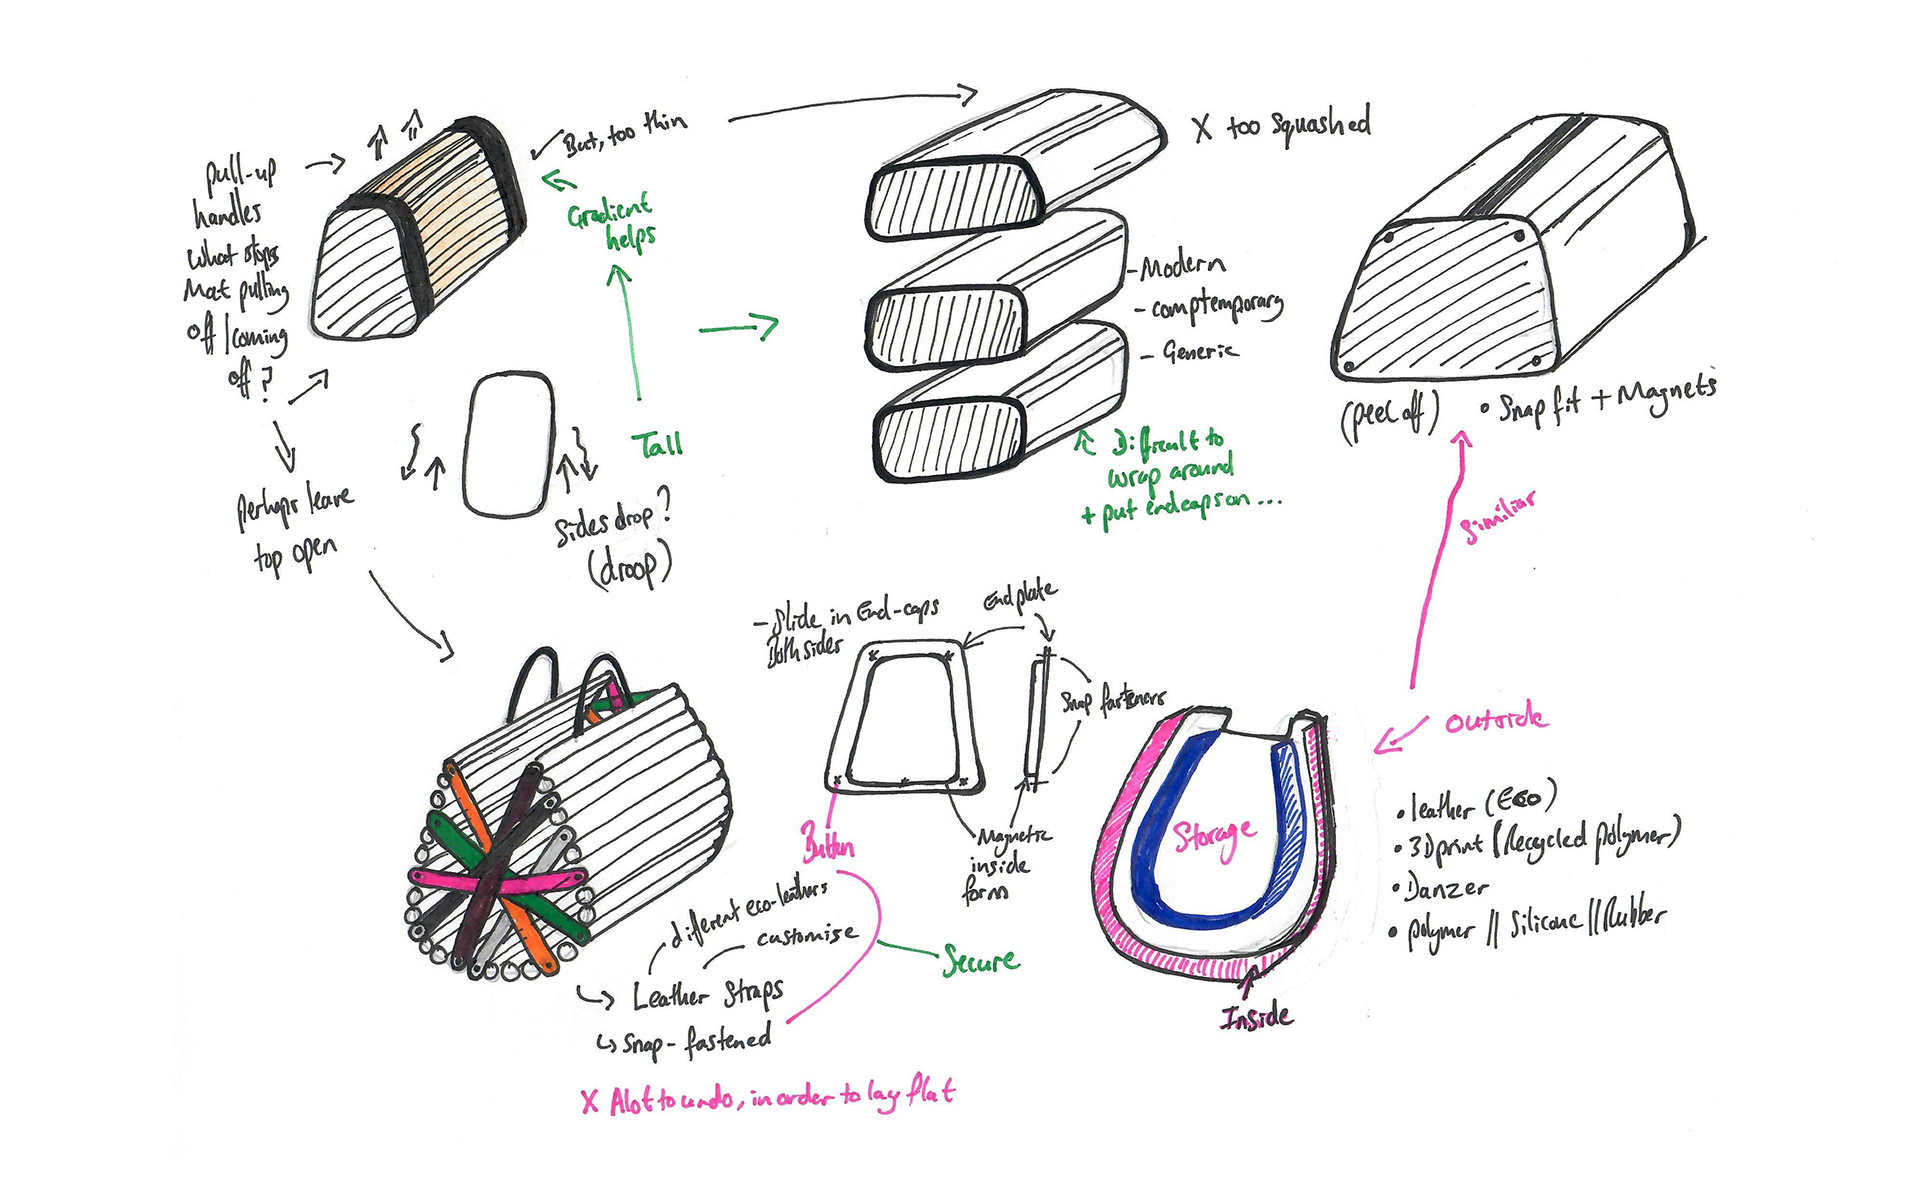 pull-up
handles
What stops
Mat pulling
off/coming
off?
But, too thin
Gradient
helps
Tall
Perhaps leave
top open
Sides drop?
(droop)
X too squashed
- Modern
- comptemporary
- Generic
Difficult to
wrap around
+ put endcaps on ...
(peel off)
• Snap fit + Magnets
Similiar
- Slide in End-caps
Both sides
End plate
Snap fasteners
Magnetic
inside
form
Button
different eco-leathers
customise
Leather Straps
Snap-fastened
Secure
X Alot to undo, in order to lay flat
Storage
Inside
Outside
• leather (Eco)
• 3Dprint (Recycled polymer)
• Danzer
• polymer || Silicone || Rubber